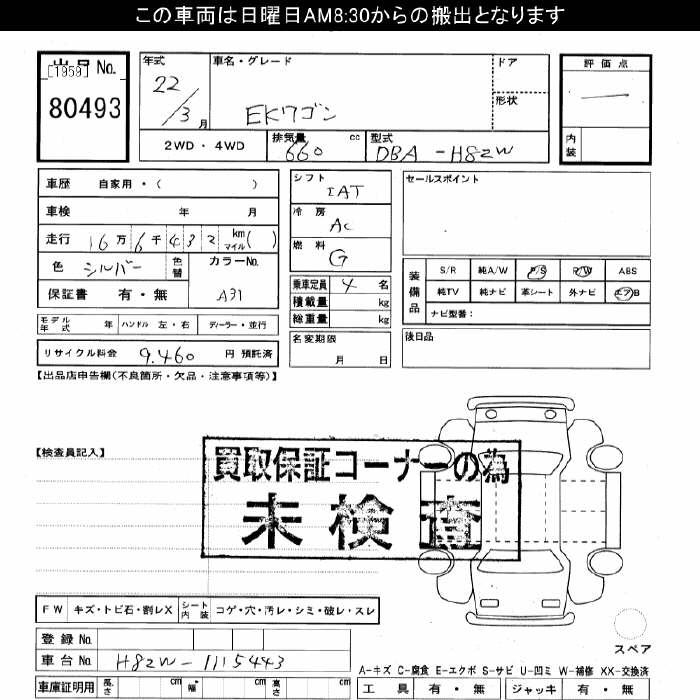 この車両は日曜日AM8:30からの搬出となります
出品 No.
[1959]
80493
年式
22/3月
車名・グレード
EKワゴン
ドア
形状
評価点
—
内装
2WD・4WD
排気量 660 cc
型式 DBA-H82W
車歴 自家用・( )
車検 年 月
走行 16万6千432 km マイル( )
色 シルバー 色替
カラーNo. A31
保証書 有・無
シフト IAT
冷房 AC
燃料 G
乗車定員 4 名
積載量 kg
総重量 kg
名変期限 月 日
セールスポイント
装備品
S/R 純A/W P/S P/W ABS
純TV 純ナビ 革シート 外ナビ エアB
ナビ型番:
後日品
モデル年式 年 ハンドル 左・右 ディーラー・並行
リサイクル料金 9.460 円 預託済
【出品店申告欄(不良箇所・欠品・注意事項等)】
【検査員記入】
買取保証コーナーの為
未検査
FW キズ・トビ石・割レX シート内装 コゲ・穴・汚レ・シミ・破レ・スレ
登録 No.
車台 No. H82W-1115443
車庫証明用 長さ cm 幅 cm 高さ cm
スペア
A-キズ C-腐食 E-エクボ S-サビ U-凹ミ W-補修 XX-交換済
工具 有・無 ジャッキ 有・無